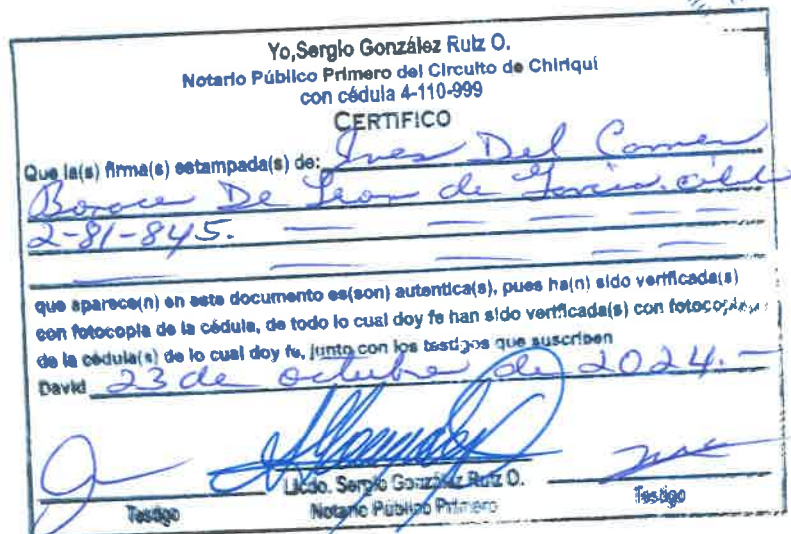 Yo, Sergio González Ruiz O.
Notario Público Primero del Circuito de Chiriquí
con cédula 4-110-999
CERTIFICO
Que la(s) firma(s) estampada(s) de: Ines Del Carmen
De Leon de Garcia
2-81-845.
que aparece(n) en este documento es(son) autentica(s), pues ha(n) sido verificada(s)
con fotocopia de la cédula, de todo lo cual doy fe han sido verificada(s) con fotocopia
de la cédula(s) de lo cual doy fe, junto con los testigos que suscriben
David 23 de octubre de 2024.-
Licdo. Sergio González Ruiz O.
Testigo Notario Público Primero Testigo